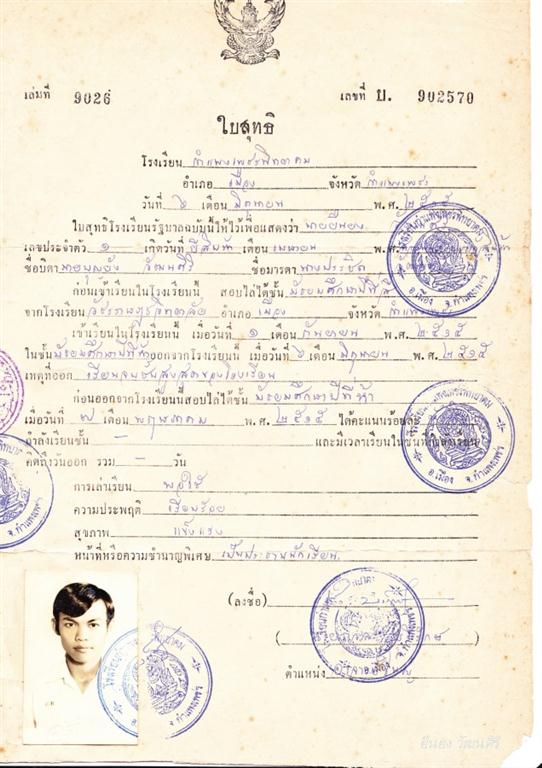 เล่มที่ 9026 เลขที่ บ. 902570
ใบสุทธิ
โรงเรียน กำแพงเพชรพิทยาคม
อำเภอ เมือง จังหวัด กำแพงเพชร
วันที่ ๖ เดือน มิถุนายน พ.ศ. ๒๕๑๕
ใบสุทธิโรงเรียนรัฐบาลฉบับนี้ให้ไว้เพื่อแสดงว่า นายยืนยง
เลขประจำตัว ๑ เกิดวันที่ ยี่สิบห้า เดือน เมษายน พ.ศ.
ชื่อบิดา วัฒนศิริ ชื่อมารดา นางประยิต
ก่อนเข้าเรียนในโรงเรียนนี้ สอบไล่ได้ชั้น มัธยมศึกษาปีที่สี่
จากโรงเรียน วัชรราษฎร์วิทยาลัย อำเภอ เมือง จังหวัด กำแพงเพชร
เข้าเรียนในโรงเรียนนี้ เมื่อวันที่ ๑ เดือน กันยายน พ.ศ. ๒๕๑๕
ในชั้น มัธยมศึกษาปีที่ห้า ออกจากโรงเรียนนี้ เมื่อวันที่ ๖ เดือน มิถุนายน พ.ศ. ๒๕๑๕
เหตุที่ออก เรียนจบชั้นสูงสุดของโรงเรียน
ก่อนออกจากโรงเรียนนี้สอบไล่ได้ชั้น มัธยมศึกษาปีที่ห้า
เมื่อวันที่ ๗ เดือน พฤษภาคม พ.ศ. ๒๕๑๕ ได้คะแนนร้อยละ
กำลังเรียนชั้น - และมีเวลาเรียนในชั้นที่กำลังเรียน
คิดถึงวันออก รวม - วัน
การเล่าเรียน พอใช้
ความประพฤติ เรียบร้อย
สุขภาพ แข็งแรง
หน้าที่หรือความชำนาญพิเศษ เป็นประธานนักเรียน
(ลงชื่อ)
ตำแหน่ง
อ.เมือง จ.กำแพงเพชร
อ.เมือง จ.กำแพงเพชร
จ.กำแพงเพชร
ยืนยง วัฒนศิริ